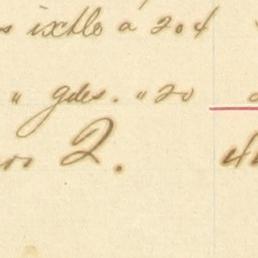 s ixtlo á 204
" gdes. " 20
2.